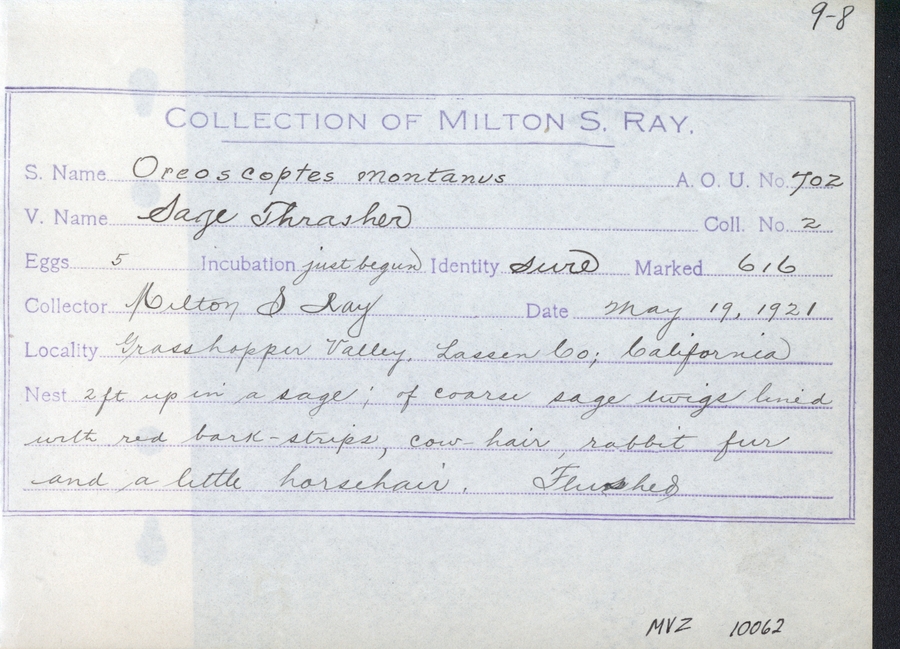 9-8
COLLECTION OF MILTON S. RAY.
S. Name Oreoscoptes montanus A. O. U. No. 702
V. Name Sage Thrasher Coll. No. 2
Eggs 5 Incubation just begun Identity sure Marked 616
Collector Milton S Ray Date May 19, 1921
Locality Grasshopper Valley, Lassen Co; California
Nest 2 ft up in a sage; of coarse sage twigs lined
with red bark-strips, cow-hair, rabbit fur
and a little horsehair. Flushed
MVZ 10062